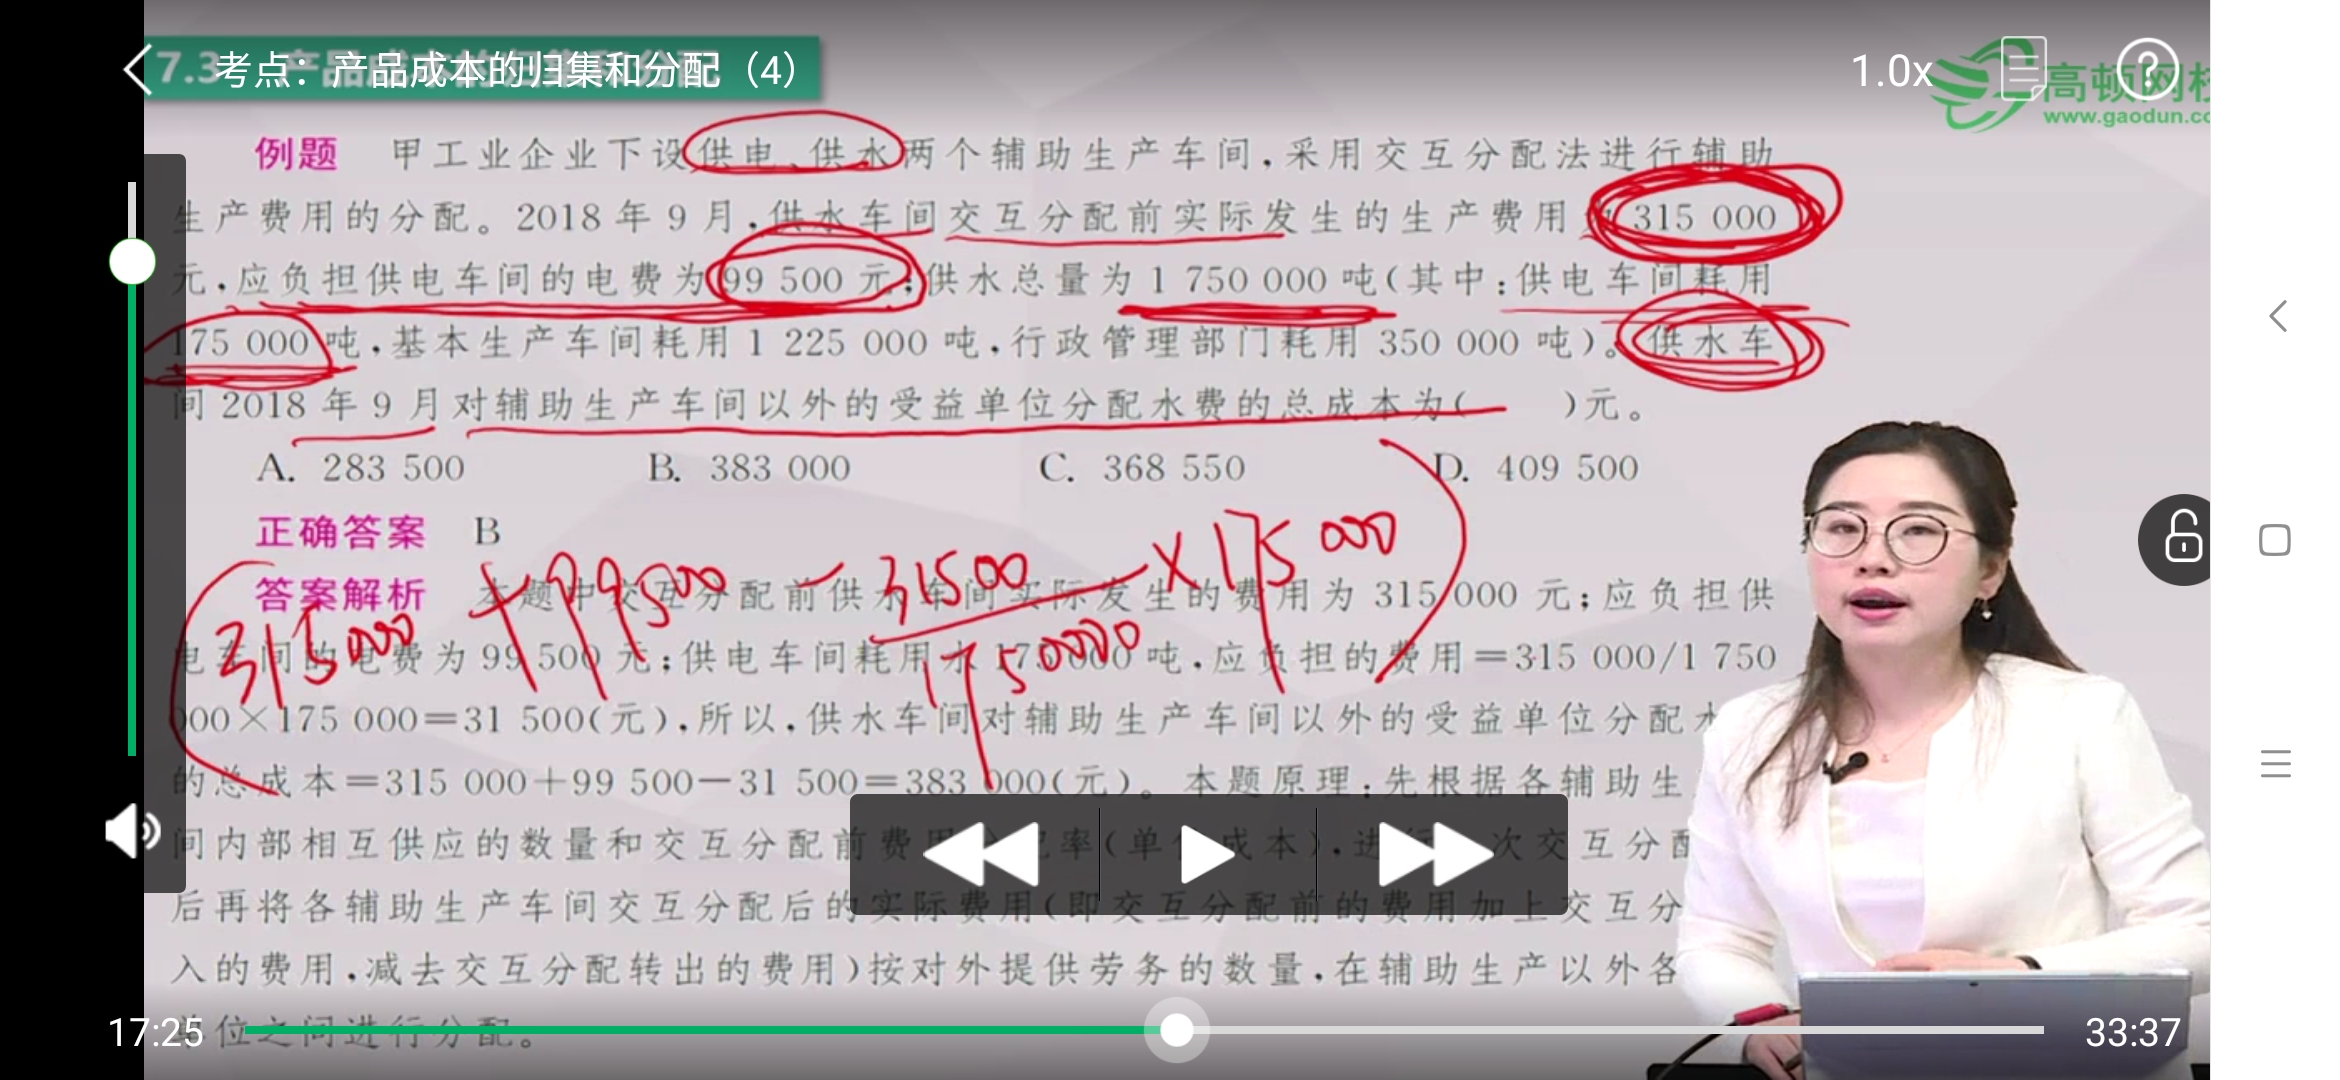 考点：产品成本的归集和分配（4）
1.0x
7.3
高顿网校
www.gaodun.co
例题 甲工业企业下设供电、供水两个辅助生产车间,采用交互分配法进行辅助
生产费用的分配。2018年9月,供水车间交互分配前实际发生的生产费用 315 000
元,应负担供电车间的电费为99 500元;供水总量为1 750 000吨(其中:供电车间耗用
175 000吨,基本生产车间耗用1 225 000吨,行政管理部门耗用350 000吨)。供水车
间2018年9月对辅助生产车间以外的受益单位分配水费的总成本为( )元。
A. 283 500 B. 383 000 C. 368 550 D. 409 500
正确答案 B
315000 + 99500 - 31500 × 175000
1750000
答案解析 本题中交互分配前供水车间实际发生的费用为315 000元;应负担供
电车间的电费为99 500元;供电车间耗用水175 000吨,应负担的费用=315 000/1 750
000×175 000=31 500(元),所以,供水车间对辅助生产车间以外的受益单位分配水
的总成本=315 000+99 500-31 500=383 000(元)。本题原理:先根据各辅助生
间内部相互供应的数量和交互分配前费用 率(单位成本),进行 次交互分配
后再将各辅助生产车间交互分配后的实际费用(即交互分配前的费用加上交互分
入的费用,减去交互分配转出的费用)按对外提供劳务的数量,在辅助生产以外各
单位之间进行分配。
17:25
33:37